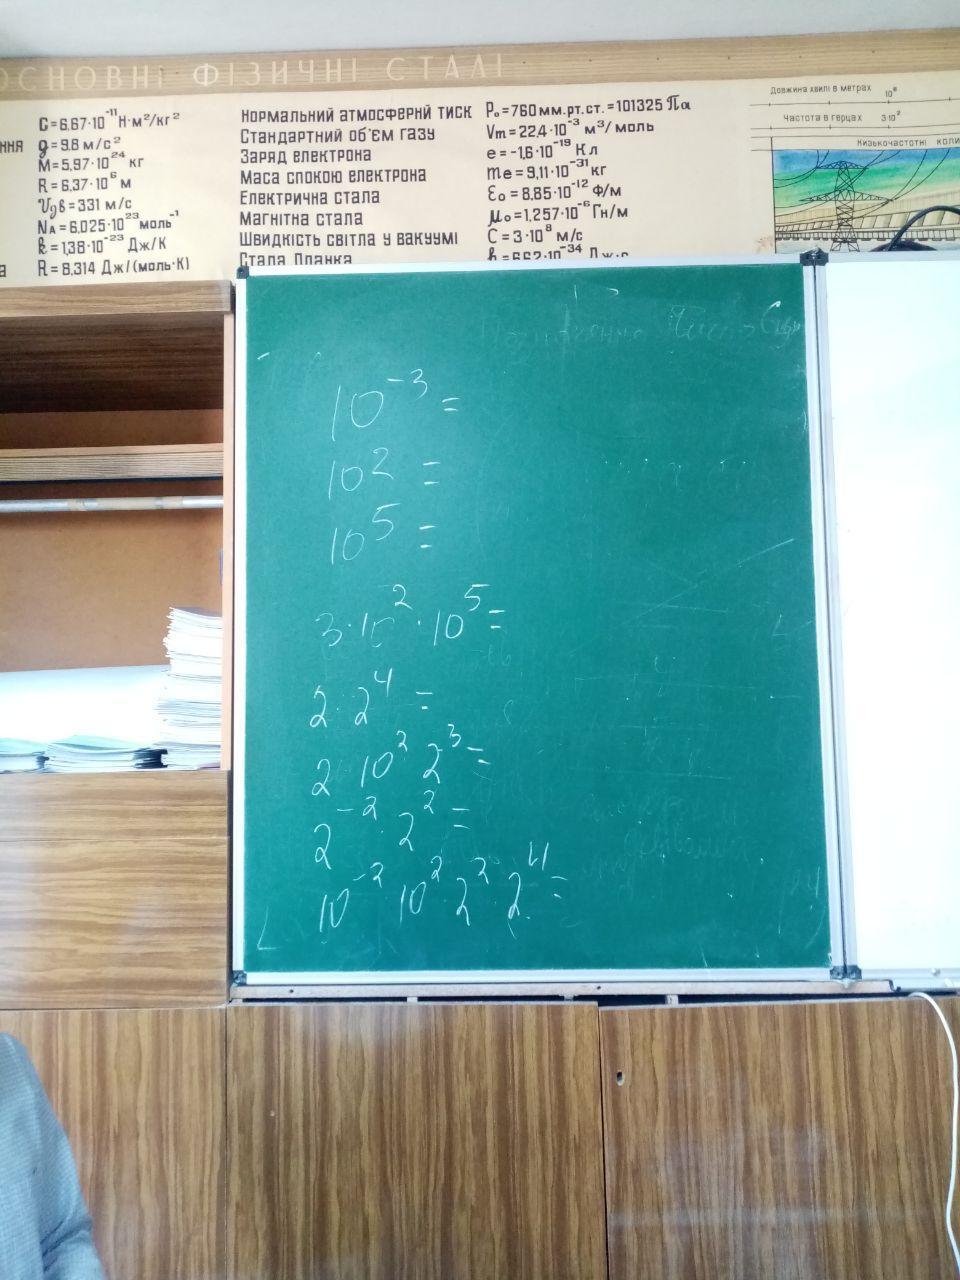 ОСНОВНІ ФІЗИЧНІ СТАЛІ
G=6,67·10⁻¹¹ Н·м²/кг²
g=9,8 м/с²
M=5,97·10²⁴ кг
R=6,37·10⁶ м
Vзв=331 м/с
NA=6,025·10²³ моль⁻¹
k=1,38·10⁻²³ Дж/К
R=8,314 Дж/(моль·К)
НОРМАЛЬНИЙ АТМОСФЕРНЙ ТИСК P₀=760 мм.рт.ст.=101325 Па
СТАНДАРТНИЙ ОБ'ЄМ ГАЗУ Vm=22,4·10⁻³ м³/моль
ЗАРЯД ЕЛЕКТРОНА e=-1,6·10⁻¹⁹ Кл
МАСА СПОКОЮ ЕЛЕКТРОНА me=9,11·10⁻³¹ кг
ЕЛЕКТРИЧНА СТАЛА ε₀=8,85·10⁻¹² Ф/м
МАГНІТНА СТАЛА μ₀=1,257·10⁻⁶ Гн/м
ШВИДКІСТЬ СВІТЛА У ВАКУУМІ C=3·10⁸ м/с
СТАЛА ПЛАНКА h=6,62·10⁻³⁴ Дж·с
Довжина хвилі в метрах 10⁶
Частота в герцах 3·10²
Низькочастотні
10⁻³ =
10² =
10⁵ =
3·10²·10⁵=
2·2⁴ =
2·10²·2³=
2⁻²·2²=
10⁻²·10²·2²·2⁴=